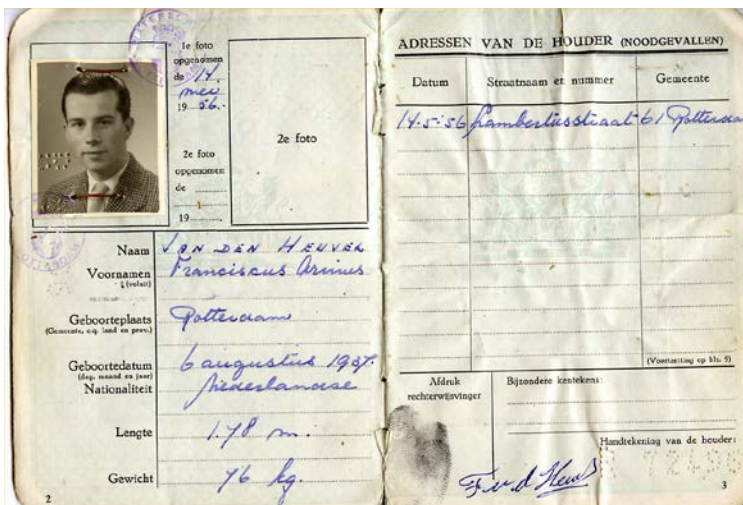 1e foto
opgenomen
de 14
mei
1956.
2e foto
opgenomen
de
19
2e foto
Naam VAN DEN HEUVEL
Voornamen Franciscus Arinus
(voluit)
Geboorteplaats Rotterdam
(Gemeente, c.q. land en prov.)
Geboortedatum 6 augustus 1937.
(dag, maand en jaar)
Nationaliteit Nederlandse
Lengte 1.78 m.
Gewicht 76 kg.
2
ADRESSEN VAN DE HOUDER (NOODGEVALLEN)
Datum Straatnaam en nummer Gemeente
14-5-'56 Lambertusstraat 61 Rotterdam
(Voortzetting op blz. 5)
Afdruk
rechterwijsvinger
Bijzondere kentekens:
Handtekening van de houder:
F. v. d. Heuvel
3